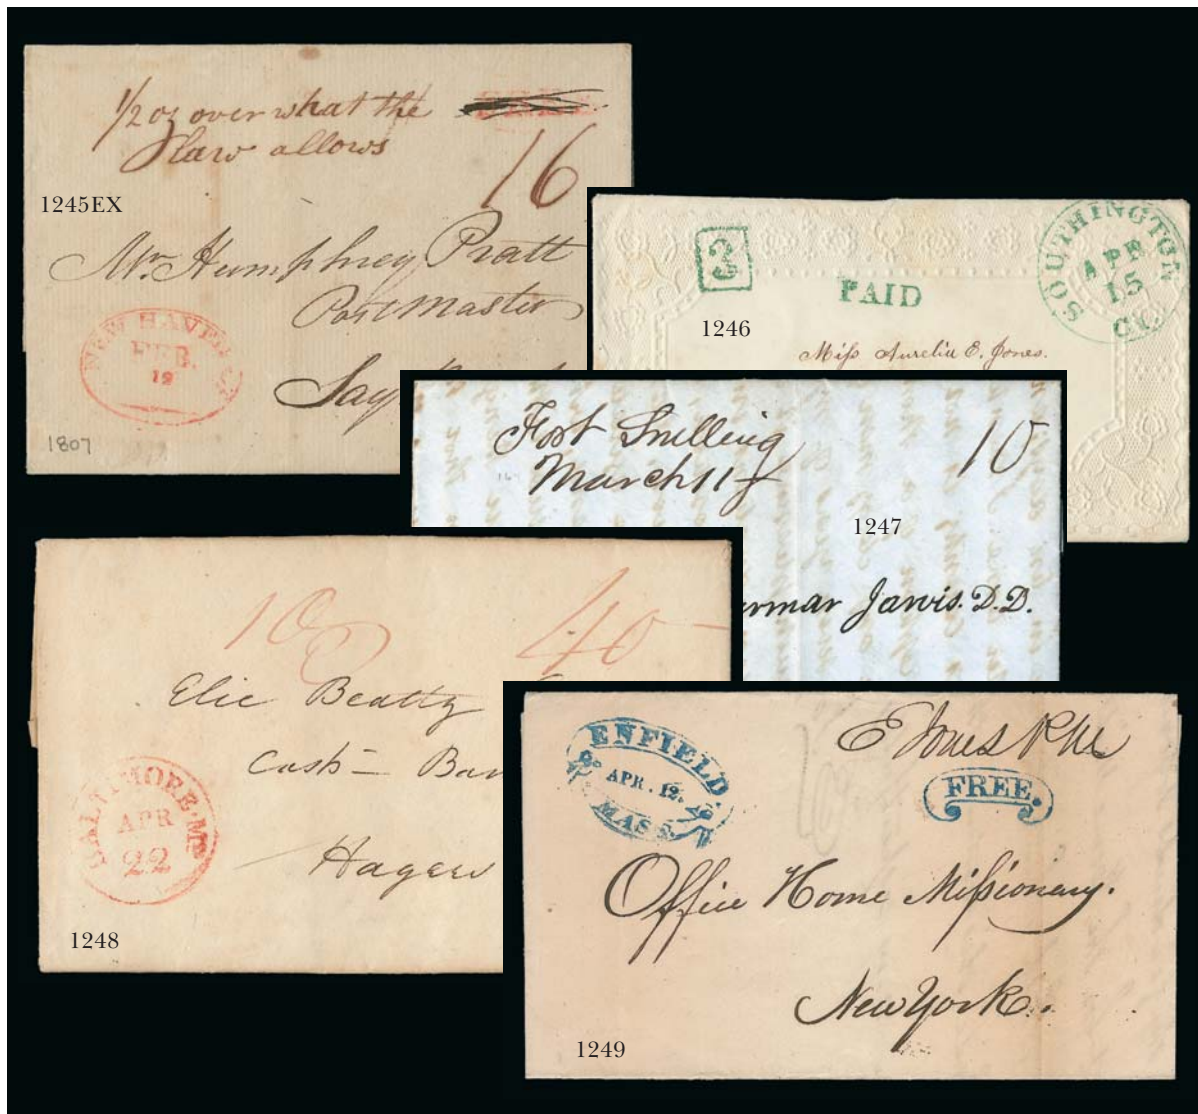 1/2 oz over what the
law allows
FREE
16
1245EX
Mr. Humphrey Pratt
Post Master
Say
NEW HAVEN CT
FEB.
19
1807
3
PAID
SOUTHINGTON
APR
15
CT.
1246
Miſs Aurelia E. Jones.
Fort Snelling
March 11
10
1247
Jarvis. D.D.
10
40
Elie Beatty
Cash – Ban
Hagers
BALTIMORE. MD
APR
22
1248
ENFIELD.
APR. 12.
MASS.
E Jones P.M.
FREE.
Office Home Miſsionary.
New York.
1249